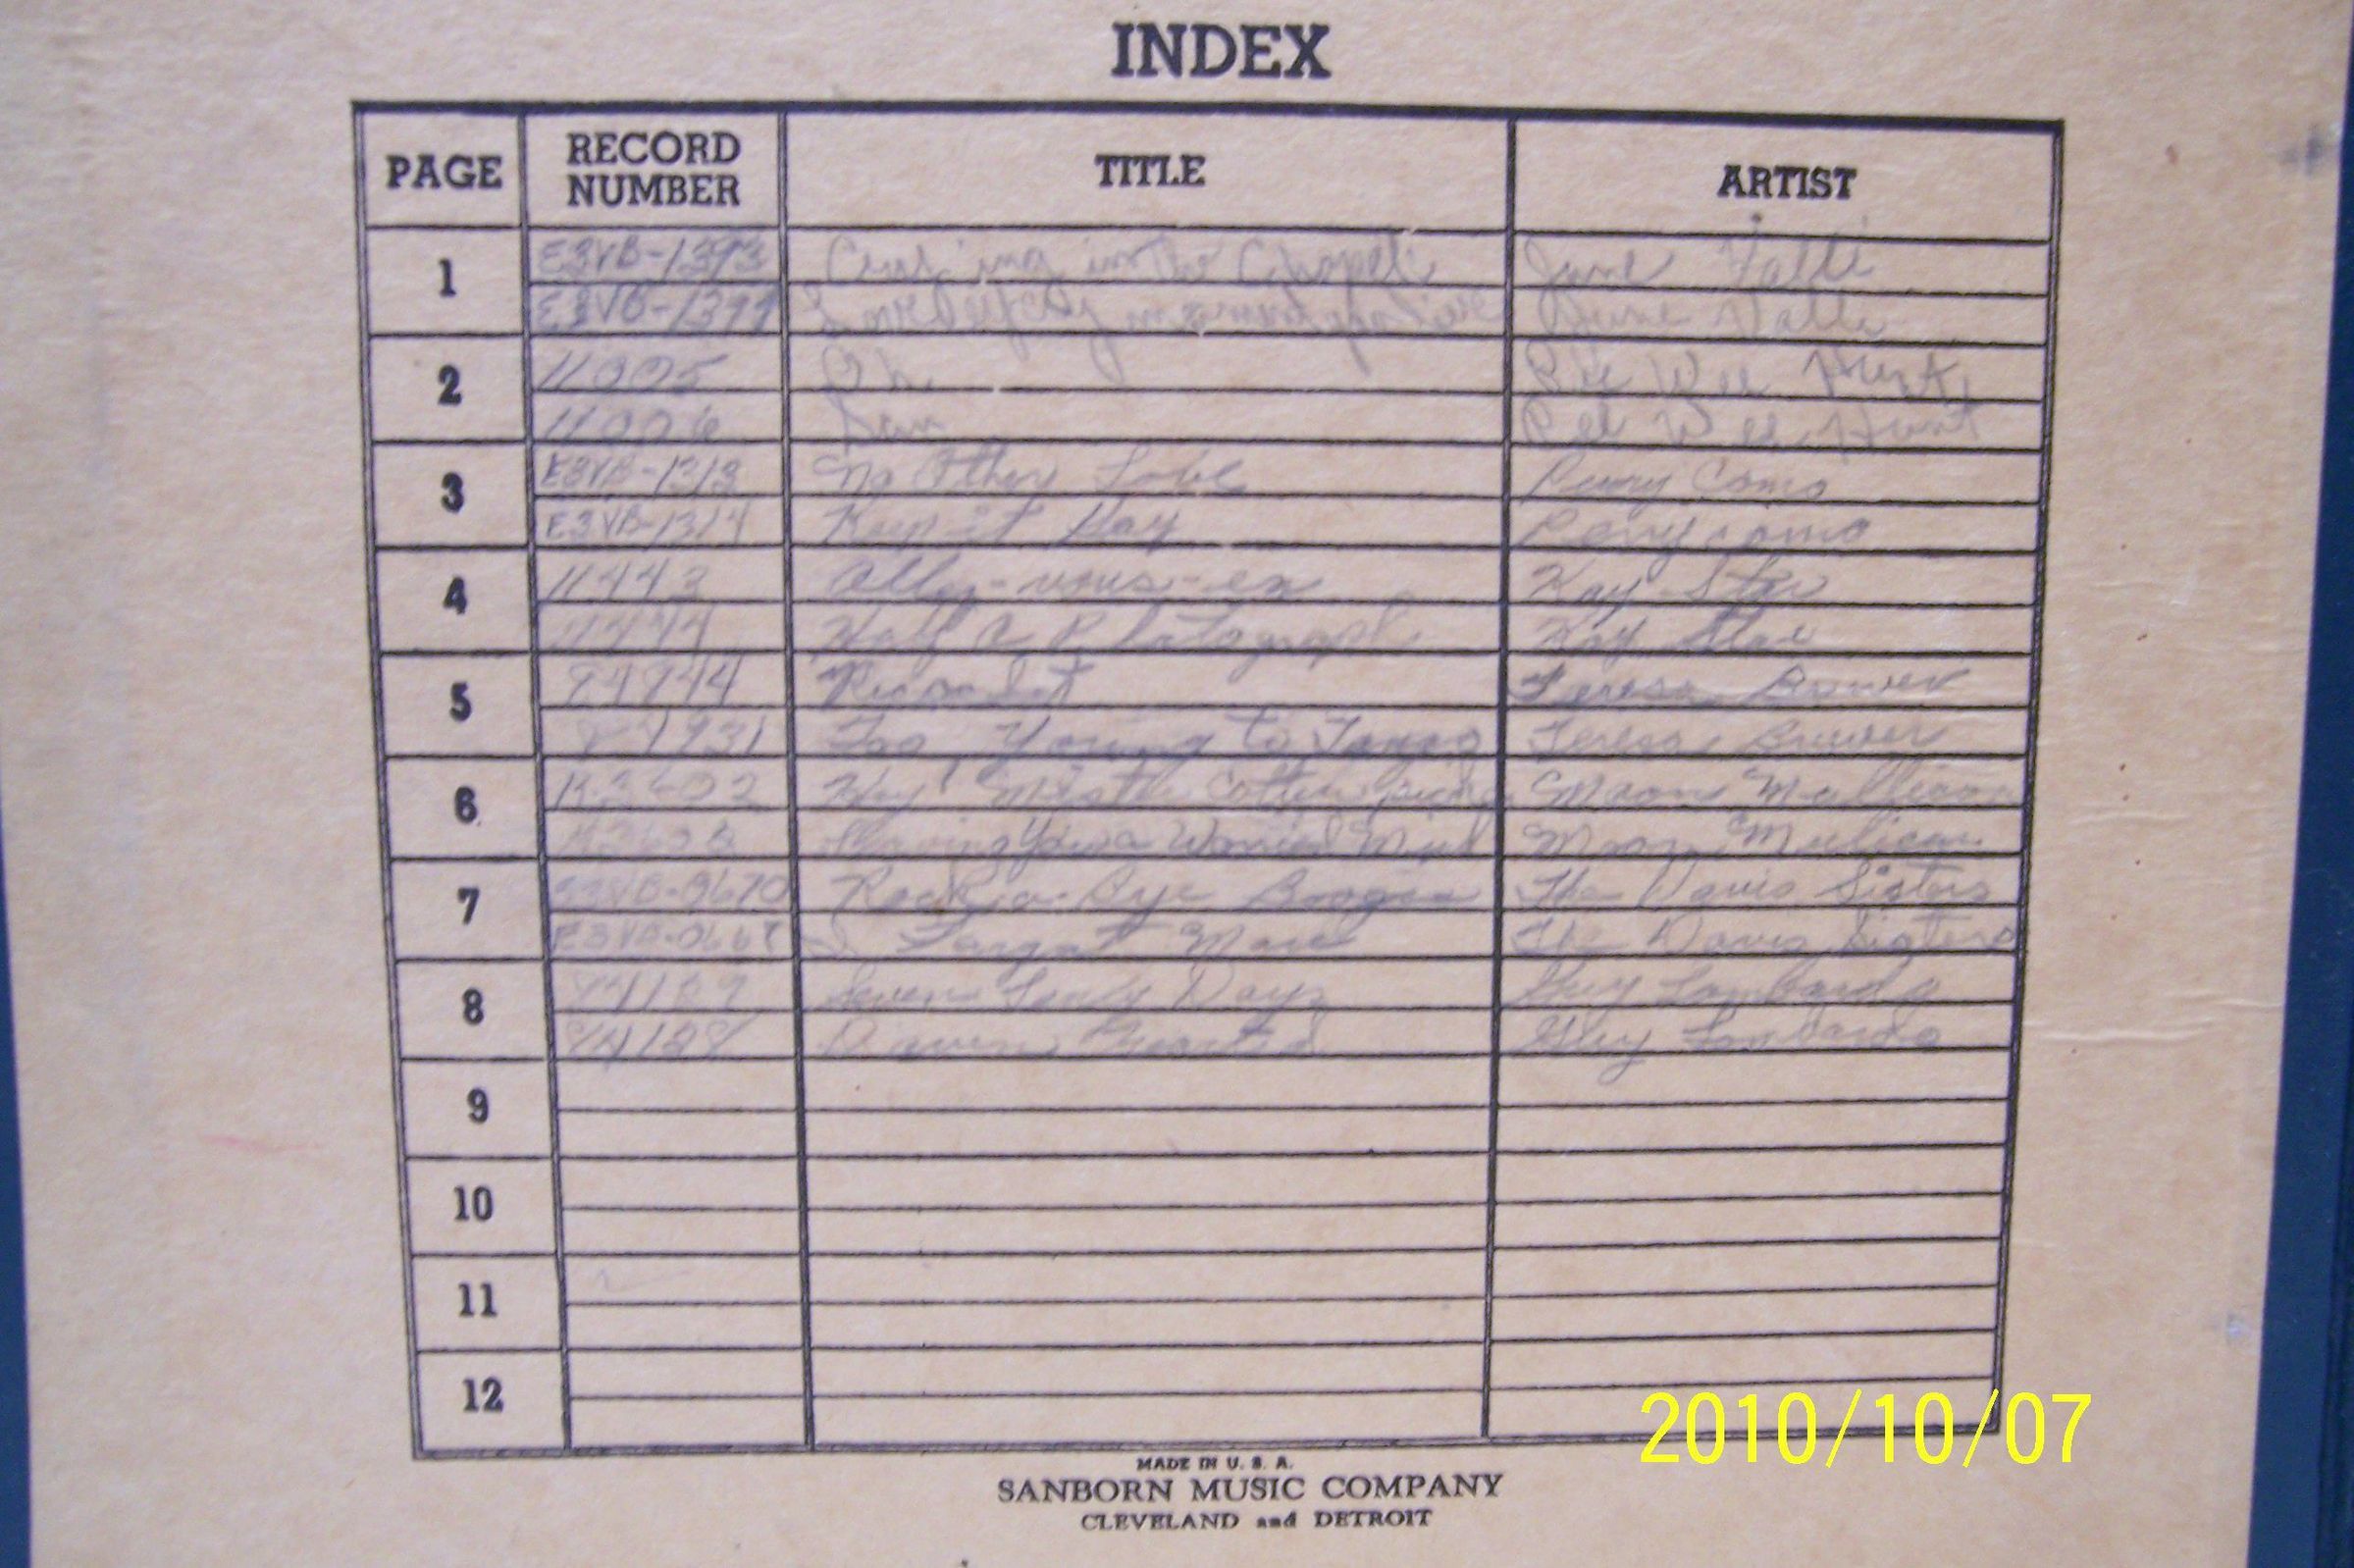 INDEX
PAGE RECORD NUMBER TITLE ARTIST
1 E3VB-1393 in the Chapel June Valli
E3VB-1394 June Valli
2 11005 Oh Pee Wee Hunt
11006 San Pee Wee Hunt
3 E3VB-1313 No Other Love Perry Como
E3VB-1314 Keep it Gay Perry Como
4 11443 Allez-vous-en Kay Starr
11444 Half a Photograph Kay Starr
5 Ricochet Teresa Brewer
Too Young to Tango Teresa Brewer
6 Hey Mister Cotton Moon Mullican
Worried Mind Moon Mulican
7 Rock-a-Bye Boogie The Davis Sisters
I Forgot More The Davis Sisters
8 84189 Seven Lonely Days Guy Lombardo
84188 Guy Lombardo
9
10
11
12
2010/10/07
MADE IN U. S. A.
SANBORN MUSIC COMPANY
CLEVELAND and DETROIT